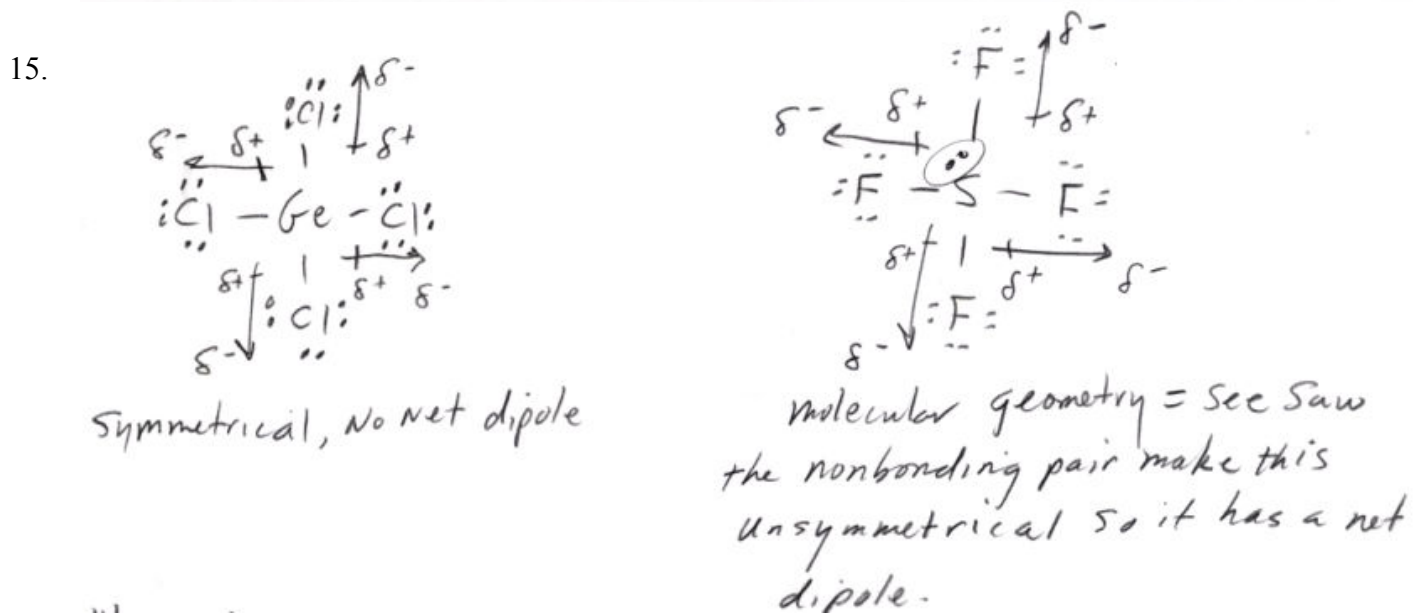 15.
δ-
:Cl:
δ- δ+ δ+
:Cl - Ge - Cl:
δ+ δ+ δ-
:Cl:
δ-
Symmetrical, No Net dipole
δ-
:F:
δ- δ+ δ+
:F - S - F:
δ+ δ+ δ-
:F:
δ-
molecular geometry = See Saw
the nonbonding pair make this
unsymmetrical so it has a net
dipole.